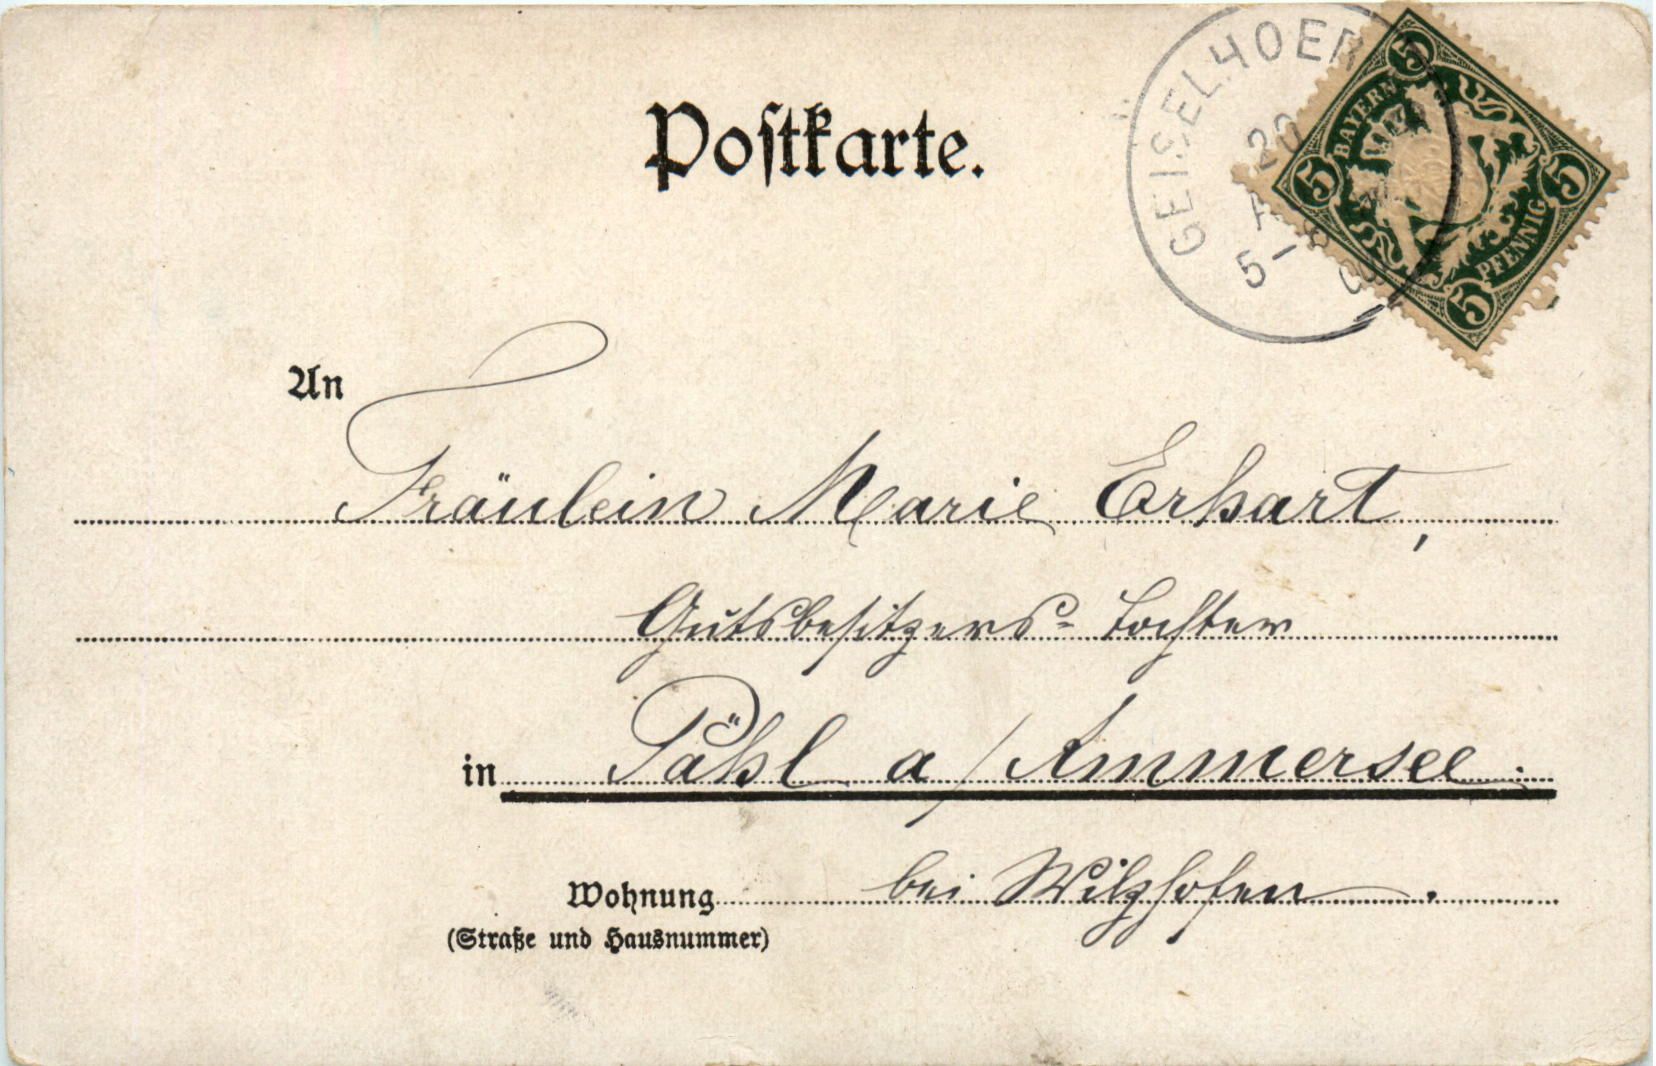 Postkarte.
GEISELHOER
20
5-8
5
BAYERN
5
5
PFENNIG
5
An
Fräulein Marie Erhart,
Gutsbesitzers-Tochter
in Pähl a/Ammersee.
Wohnung bei Wilzhofen.
(Straße und Hausnummer)